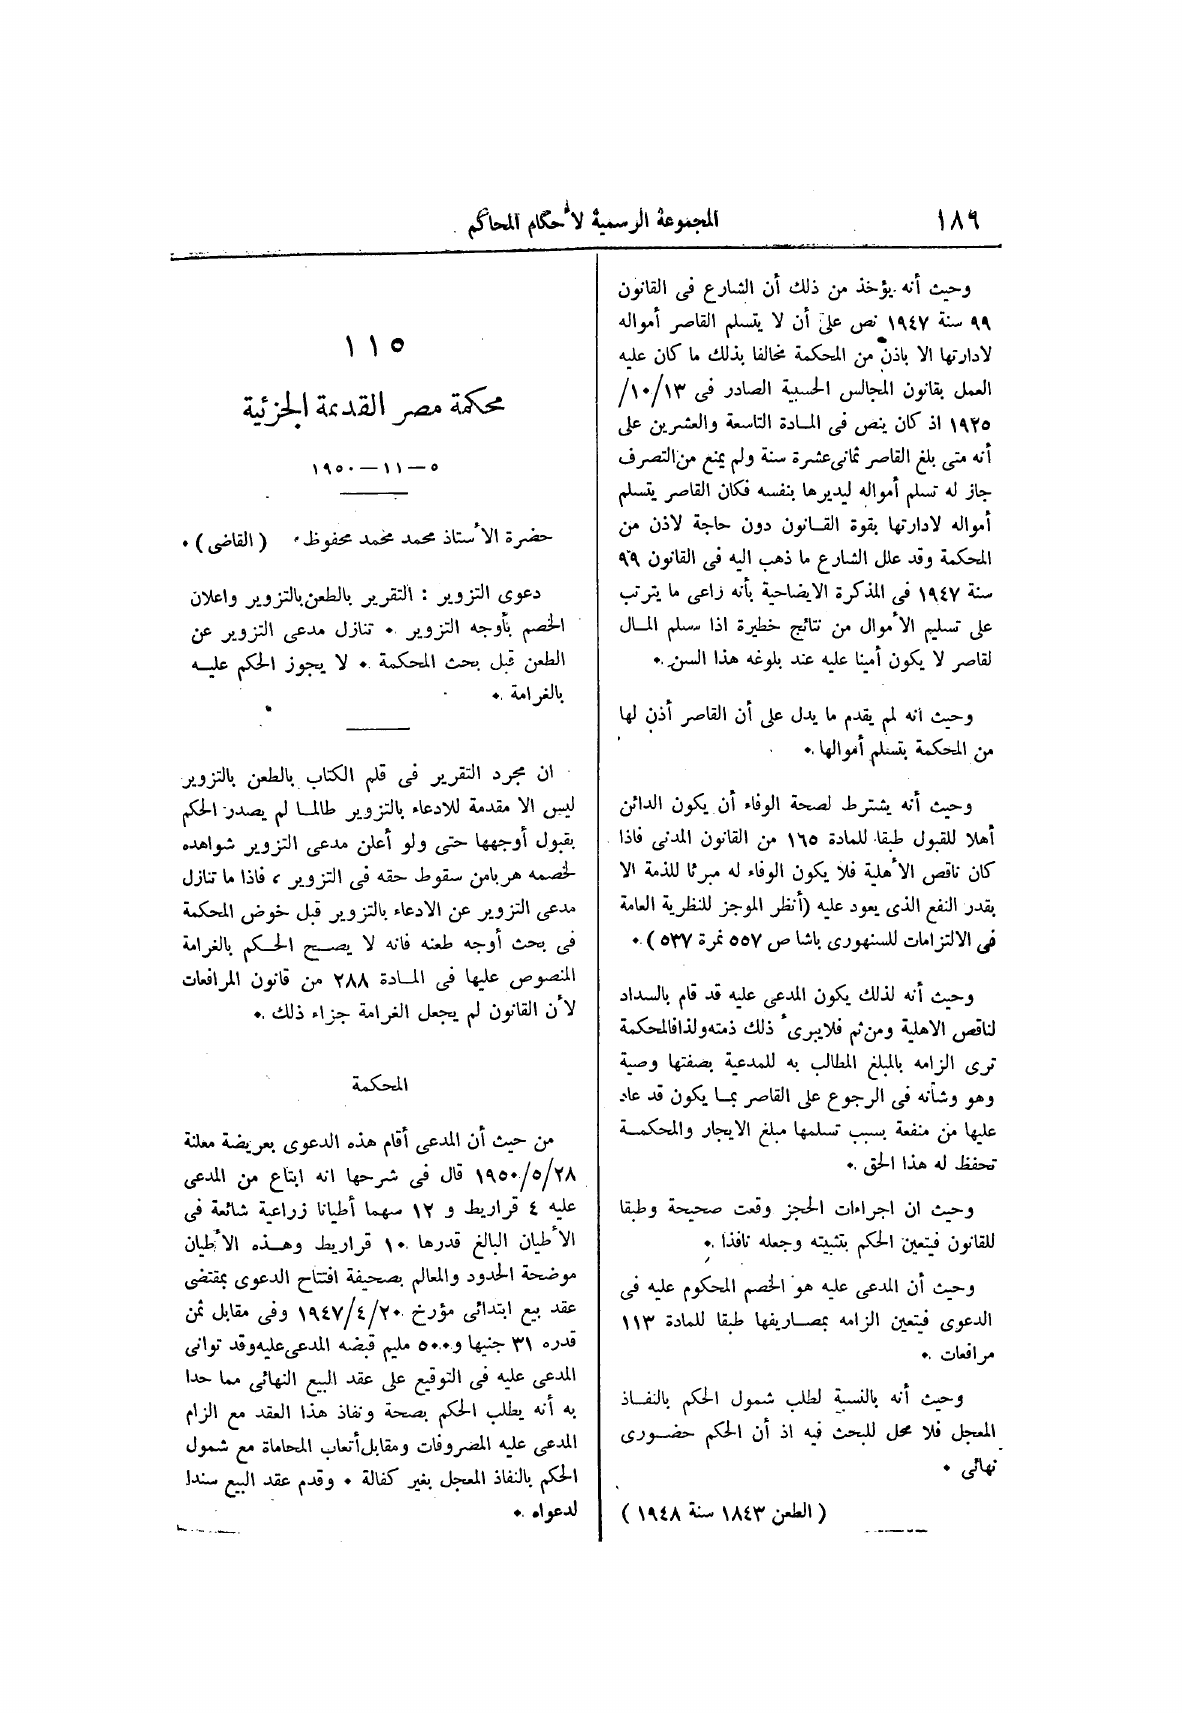 ١٨٩
المجموعة الرسمية لأحكام المحاكم
وحيث أنه يؤخذ من ذلك أن الشارع فى القانون
٩٩ سنة ١٩٤٧ نص على أن لا يتسلم القاصر أمواله
لادارتها الا باذن من المحكمة مخالفا بذلك ما كان عليه
العمل بقانون المجالس الحسبية الصادر فى ١٣/١٠/
١٩٢٥ اذ كان ينص فى المادة التاسعة والعشرين على
أنه متى بلغ القاصر ثمانى عشرة سنة ولم يمنع من التصرف
جاز له تسلم أمواله ليديرها بنفسه فكان القاصر يتسلم
أمواله لادارتها بقوة القانون دون حاجة لاذن من
المحكمة وقد علل الشارع ما ذهب اليه فى القانون ٩٩
سنة ١٩٤٧ فى المذكرة الايضاحية بأنه راعى ما يترتب
على تسليم الأموال من نتائج خطيرة اذا سلم المال
لقاصر لا يكون أمينا عليه عند بلوغه هذا السن.
وحيث أنه لم يقدم ما يدل على أن القاصر أذن لها
من المحكمة بتسلم أموالها.
وحيث أنه يشترط لصحة الوفاء أن يكون الدائن
أهلا للقبول طبقا للمادة ١٦٥ من القانون المدنى فاذا
كان ناقص الأهلية فلا يكون الوفاء له مبرئا للذمة الا
بقدر النفع الذى يعود عليه (أنظر الموجز للنظرية العامة
فى الالتزامات للسنهورى باشا ص ٥٥٧ نمرة ٥٣٧).
وحيث أنه لذلك يكون المدعى عليه قد قام بالسداد
لناقص الاهلية ومن ثم فلايبرىء ذلك ذمته ولذا فالمحكمة
ترى الزامه بالمبلغ المطالب به للمدعية بصفتها وصية
وهو وشأنه فى الرجوع على القاصر بما يكون قد عاد
عليها من منفعة بسبب تسلمها مبلغ الايجار والمحكمة
تحفظ له هذا الحق.
وحيث ان اجراءات الحجز وقعت صحيحة وطبقا
للقانون فيتعين الحكم بتثبيته وجعله نافذا.
وحيث أن المدعى عليه هو الخصم المحكوم عليه فى
الدعوى فيتعين الزامه بمصاريفها طبقا للمادة ١١٣
مرافعات.
وحيث أنه بالنسبة لطلب شمول الحكم بالنفاذ
المعجل فلا محل للبحث فيه اذ أن الحكم حضورى
نهائى.
( الطعن ١٨٤٣ سنة ١٩٤٨ )
١١٥
محكمة مصر القديمة الجزئية
٥-١١-١٩٥٠
حضرة الأستاذ محمد محمد محفوظ ( القاضى ).
دعوى التزوير : التقرير بالطعن بالتزوير واعلان
الخصم بأوجه التزوير. تنازل مدعى التزوير عن
الطعن قبل بحث المحكمة. لا يجوز الحكم عليه
بالغرامة.
ان مجرد التقرير فى قلم الكتاب بالطعن بالتزوير
ليس الا مقدمة للادعاء بالتزوير طالما لم يصدر الحكم
بقبول أوجهها حتى ولو أعلن مدعى التزوير شواهده
لخصمه هربا من سقوط حقه فى التزوير ، فاذا ما تنازل
مدعى التزوير عن الادعاء بالتزوير قبل خوض المحكمة
فى بحث أوجه طعنه فانه لا يصح الحكم بالغرامة
المنصوص عليها فى المادة ٢٨٨ من قانون المرافعات
لأن القانون لم يجعل الغرامة جزاء ذلك.
المحكمة
من حيث أن المدعى أقام هذه الدعوى بعريضة معلنة
٢٨/٥/١٩٥٠ قال فى شرحها انه ابتاع من المدعى
عليه ٤ قراريط و ١٢ سهما أطيانا زراعية شائعة فى
الأطيان البالغ قدرها ١٠ قراريط وهذه الأطيان
موضحة الحدود والمعالم بصحيفة افتتاح الدعوى بمقتضى
عقد بيع ابتدائى مؤرخ ٢٠/٤/١٩٤٧ وفى مقابل ثمن
قدره ٣١ جنيها و٥٠٠ مليم قبضه المدعى عليه وقد توانى
المدعى عليه فى التوقيع على عقد البيع النهائى مما حدا
به أنه يطلب الحكم بصحة ونفاذ هذا العقد مع الزام
المدعى عليه المصروفات ومقابل أتعاب المحاماة مع شمول
الحكم بالنفاذ المعجل بغير كفالة. وقدم عقد البيع سندا
لدعواه.